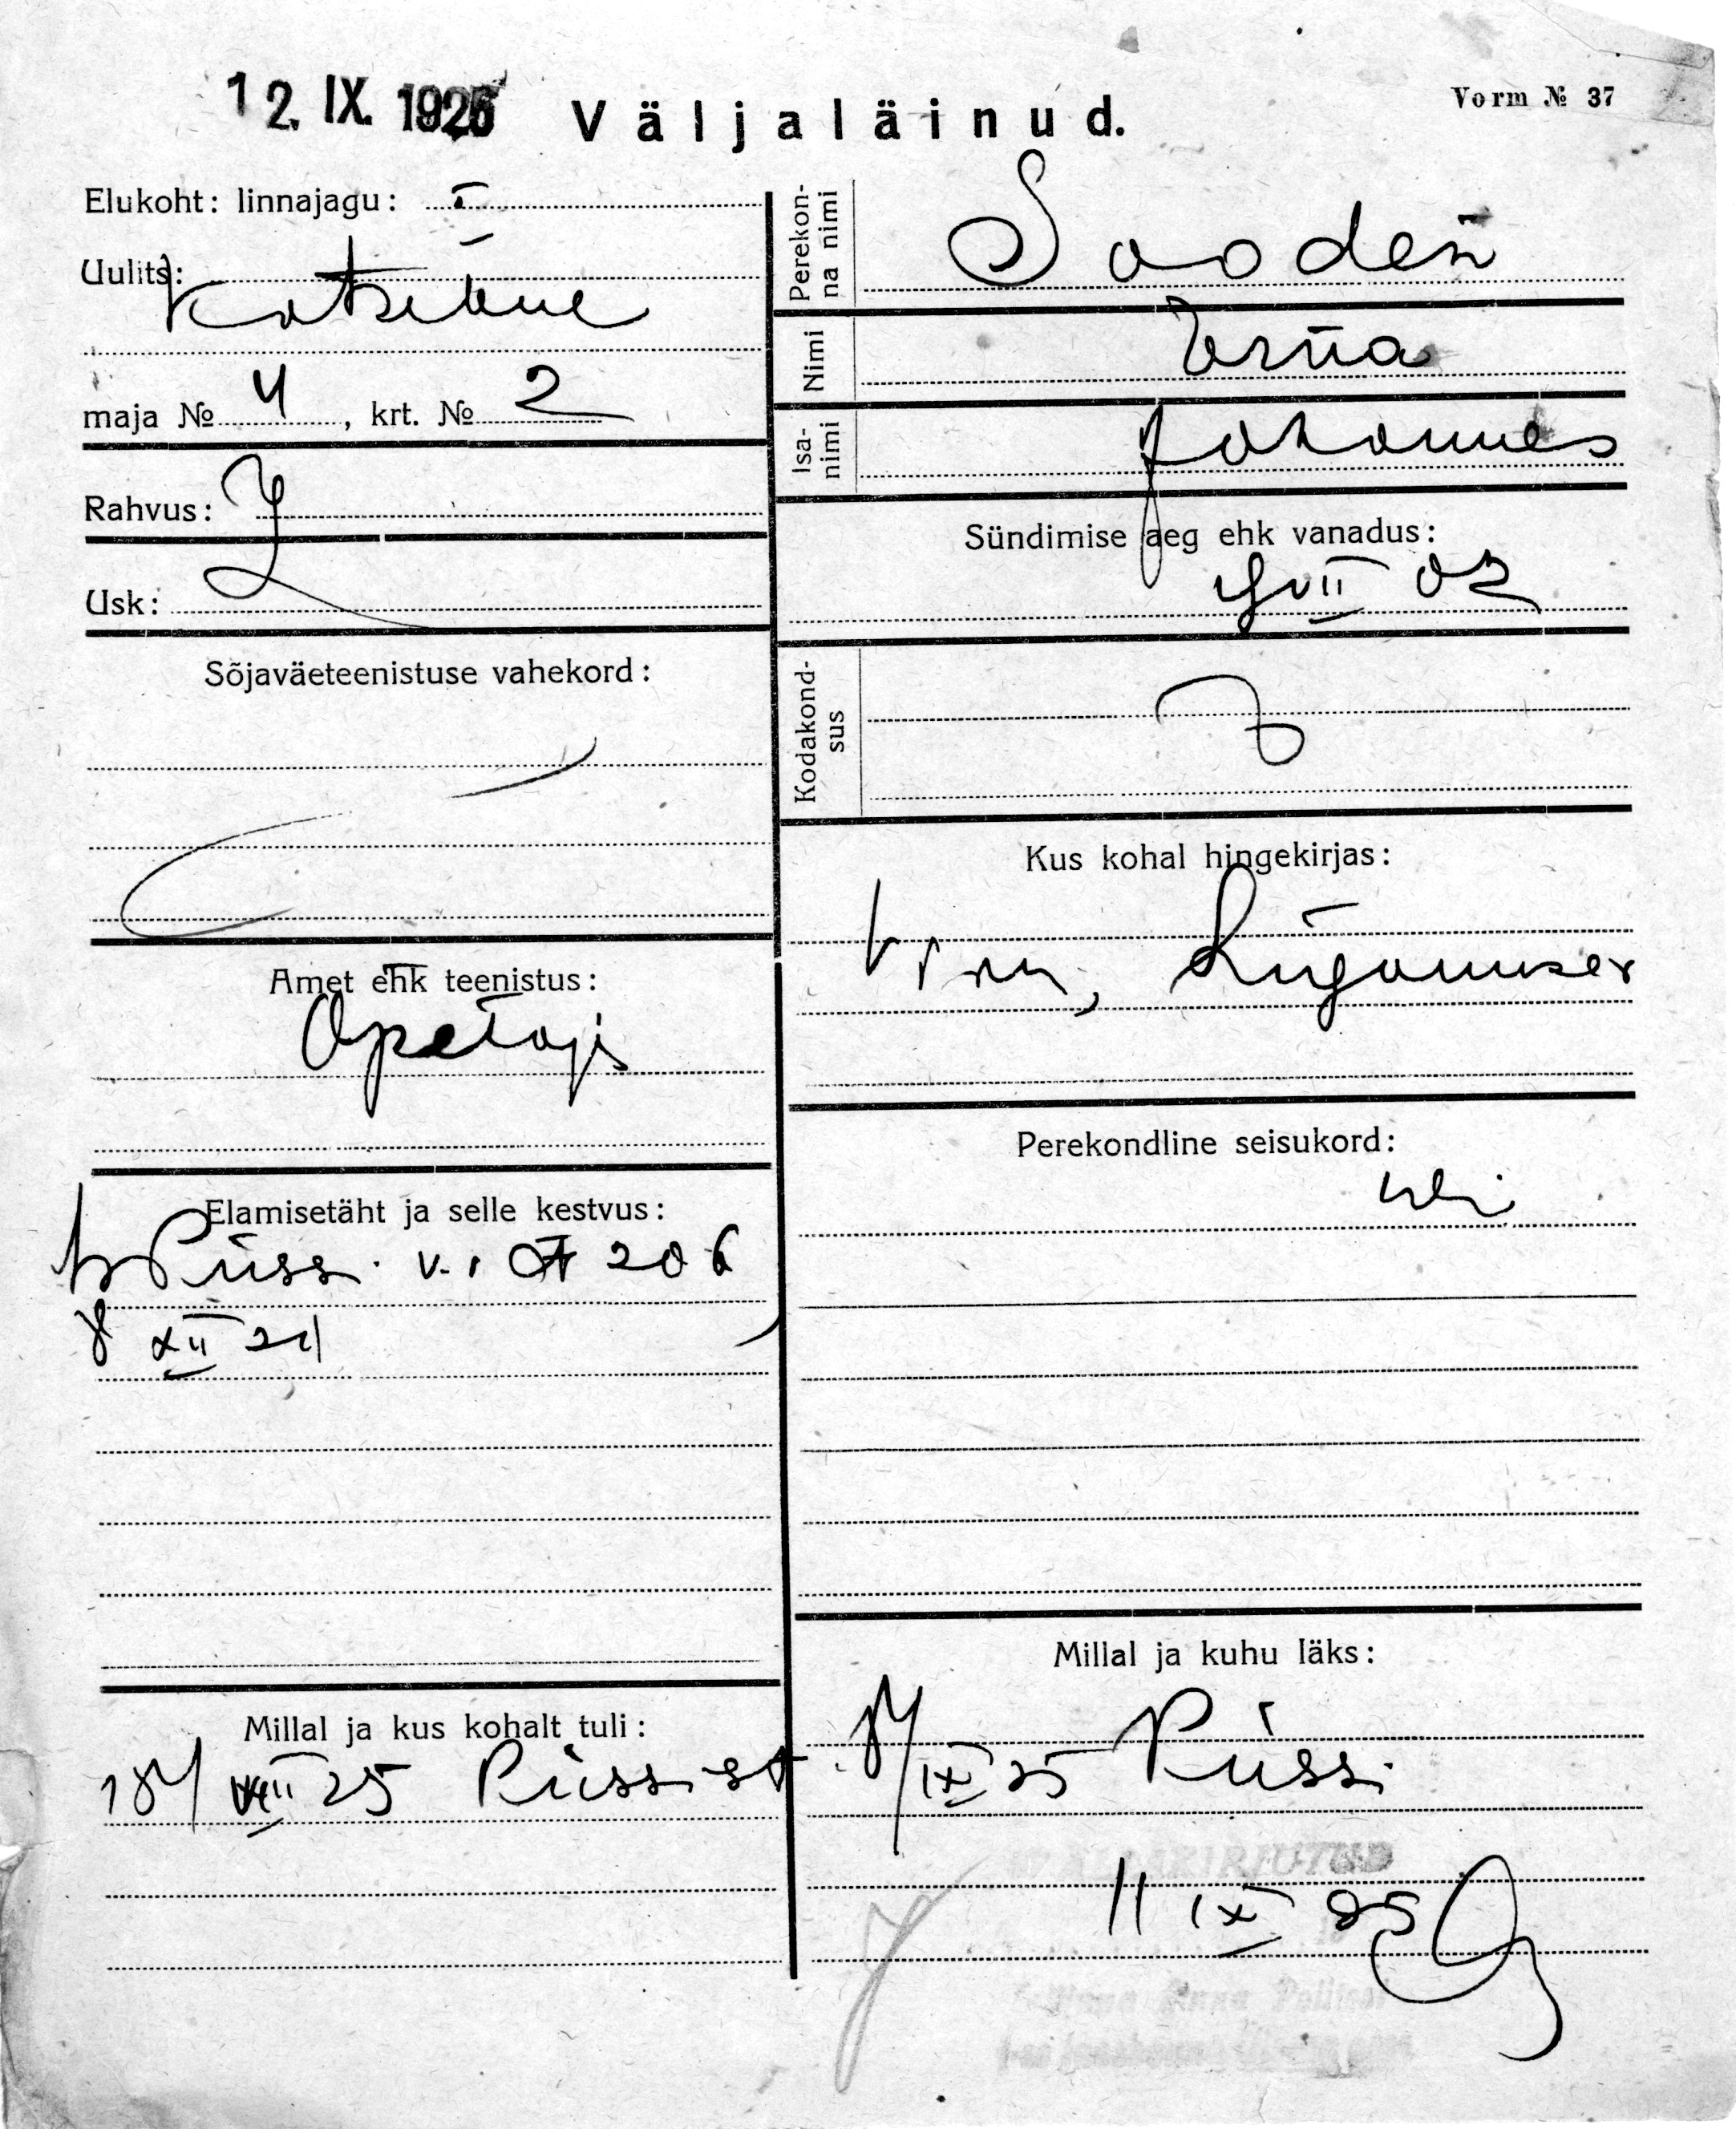 12. IX. 1925 Väljaläinud. Vorm № 37
Elukoht: linnajagu: I
Uulits: Kotzebue
maja № 4, krt. № 2
Rahvus:
Usk:
Sõjaväeteenistuse vahekord:
Amet ehk teenistus:
Õpetaja
Elamisetäht ja selle kestvus:
Püssi v. 206
8 XII 21
Millal ja kus kohalt tuli:
18/VIII 25 Püssist
Perekonna nimi Sooden
Nimi Erna
Isanimi Johannes
Sündimise aeg ehk vanadus:
VII 02
Kodakondsus
Kus kohal hingekirjas:
Viru, Lüganuse v
Perekondline seisukord:
Millal ja kuhu läks:
IX 25 Püssi
VÄLJAKIRJUTUD
11 IX 25
Tallinna Linna Politsei